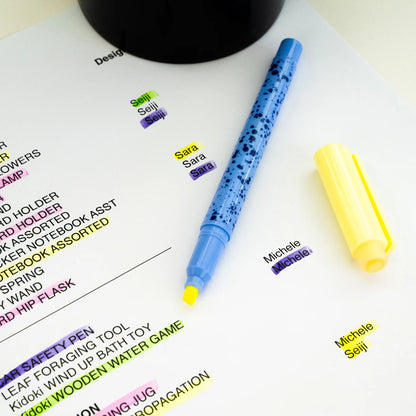 Desig
Seiji
Seiji
Seiji
Sara
Sara
Sara
ER
OWERS
AMP
ND HOLDER
RD HOLDER
OK ASSORTED
CKER NOTEBOOK ASST
NOTEBOOK ASSORTED
SPRING
Y WAND
RD HIP FLASK
Michele
Michele
Michele
Seiji
CAR SAFETY PEN
LEAF FORAGING TOOL
Kidoki WIND UP BATH TOY
Kidoki WOODEN WATER GAME
ON
NG JUG
PROPAGATION